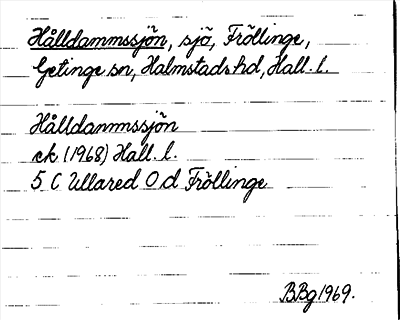 Hålldammssjön, sjö, Fröllinge,
Getinge sn, Halmstads hd, Hall. l.
Hålldammssjön
ek (1968) Hall. l.
5 C Ullared 0 d Fröllinge
BBg 1969.